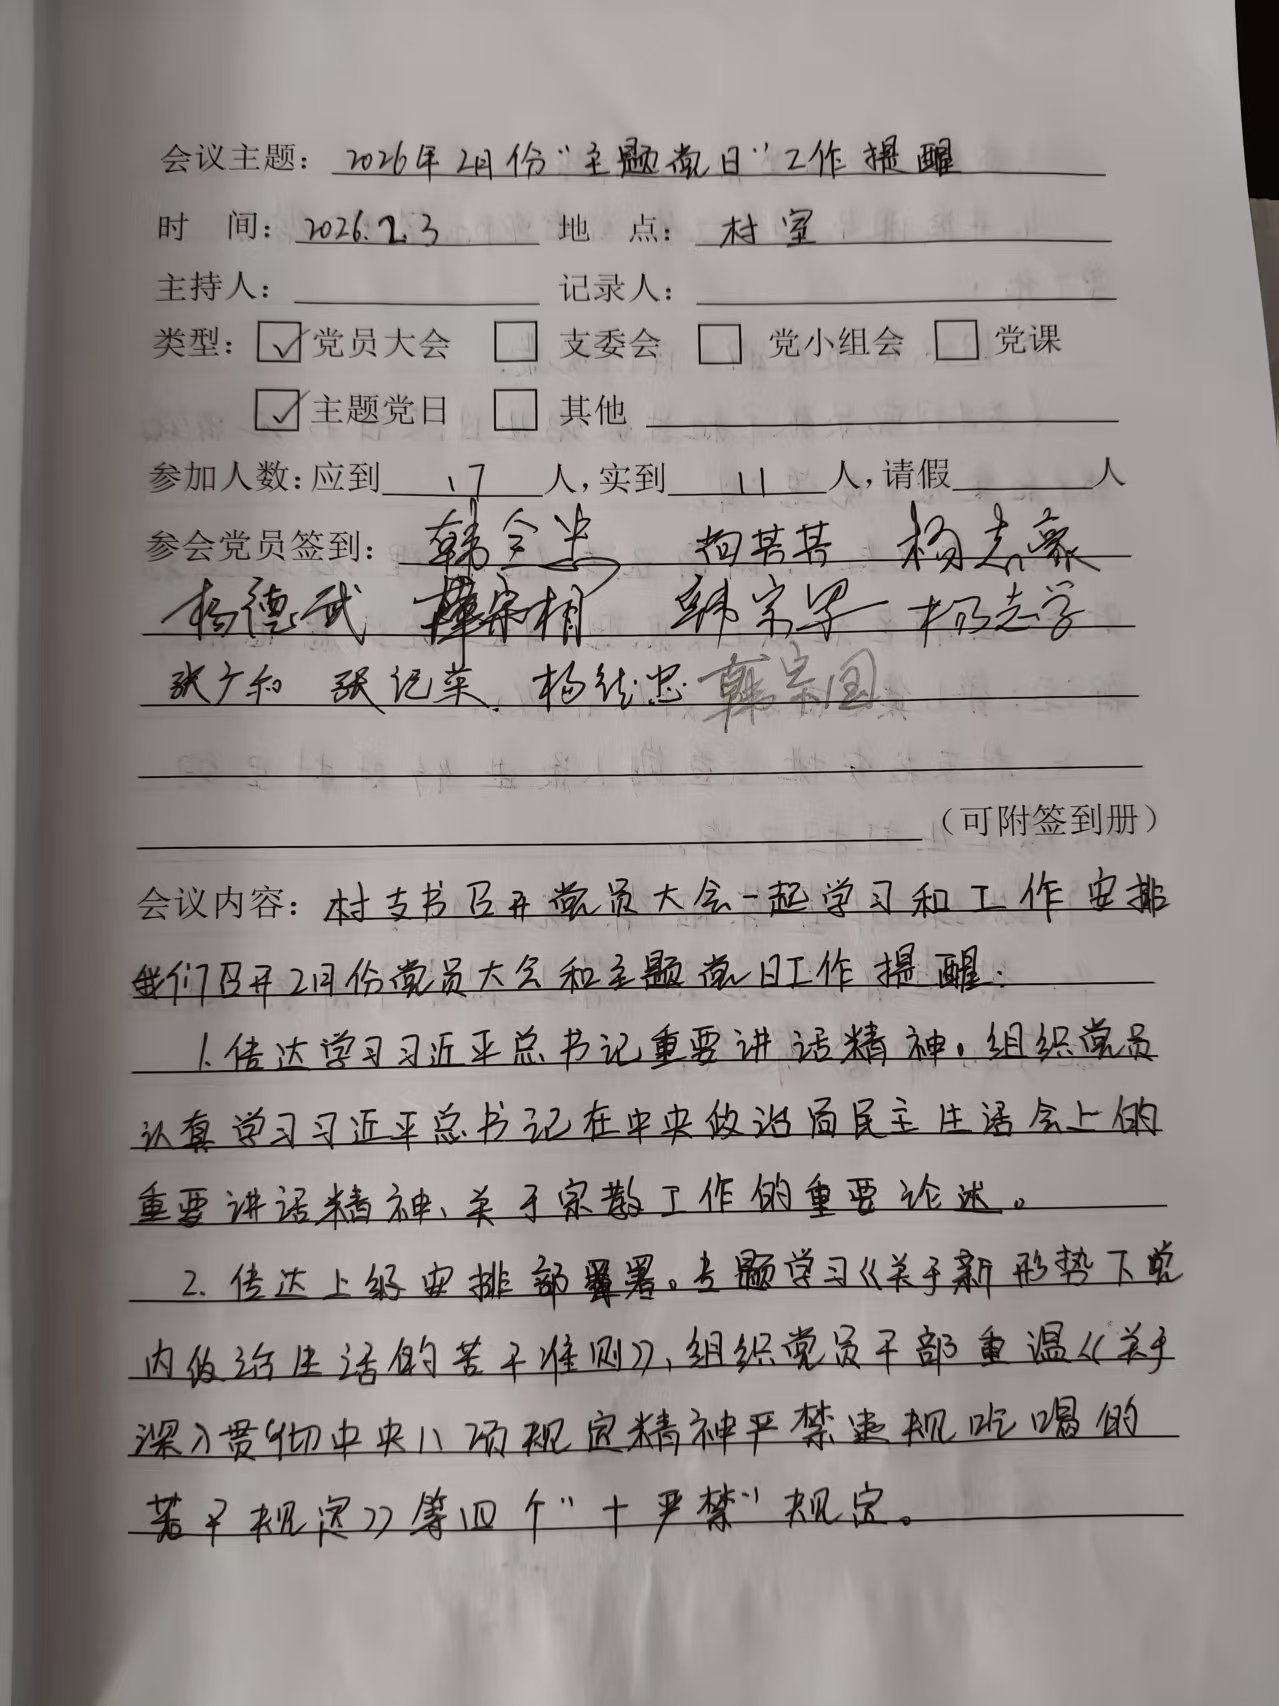 会议主题：2026年2月份“主题党日”工作提醒
时 间：2026.2.3 地 点：村室
主持人： 记录人：
类型：☑党员大会 □ 支委会 □ 党小组会 □ 党课
☑主题党日 □ 其他
参加人数：应到 17 人，实到 11 人，请假 人
参会党员签到：韩全忠 杨志豪
杨德武 韩宗相 韩宗军 杨志学
张广和 张记英 杨德忠 韩宗国
（可附签到册）
会议内容：村支书召开党员大会一起学习和工作安排
我们召开2月份党员大会和主题党日工作提醒：
1.传达学习习近平总书记重要讲话精神。组织党员
认真学习习近平总书记在中央政治局民主生活会上的
重要讲话精神、关于宗教工作的重要论述。
2.传达上级安排部署。专题学习《关于新形势下党
内政治生活的若干准则》，组织党员干部重温《关于
深入贯彻中央八项规定精神严禁违规吃喝的
若干规定》等四个“十严禁”规定。